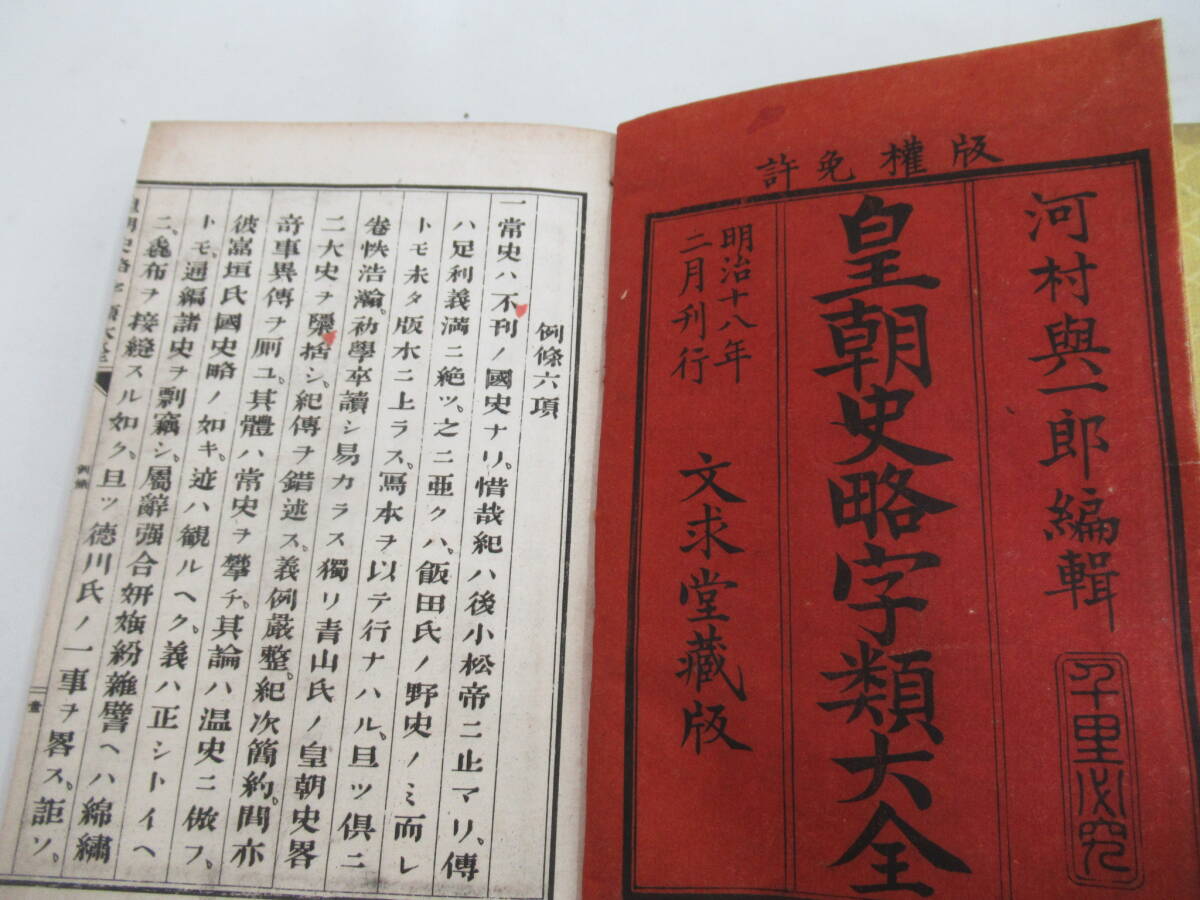 版權免許
河村與一郎編輯
千里必究
皇朝史略字類大全
明治十八年
二月刊行
文求堂藏版
例條六項
一常史ハ不刊ノ國史ナリ。惜哉紀ハ後小松帝ニ止マリ。傳
ハ足利義滿ニ絶ツ。之ニ亜クハ。飯田氏ノ野史ノミ而レ
トモ未タ版木ニ上ラス。寫本ヲ以テ行ナハル。且ツ倶ニ
卷帙浩瀚。幼學卒讀シ易カラス獨リ青山氏ノ皇朝史畧
二大史ヲ檃括シ。紀傳ヲ錯述ス。義例嚴整。紀次簡約。間亦
竒事異傳ヲ厠ユ。其體ハ常史ヲ攀チ。其論ハ温史ニ倣フ。
彼富垣氏國史略ノ如キ。迹ハ觀ルヘク。義ハ正シトイヘ
トモ。通編諸史ヲ剽竊シ。屬辭强合姸媸紛雜譬ヘハ綿繡
ニ。麁布ヲ接縫スル如ク。且ツ德川氏ノ一事ヲ畧ス。詎ソ。
皇朝史略字類大全
例條
壹